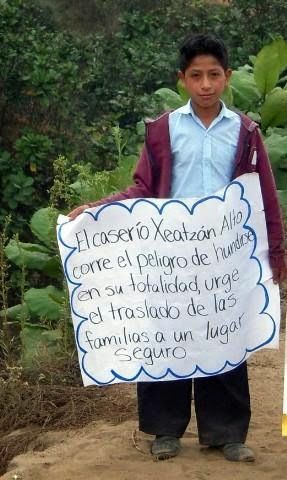 El caserío Xeatzán Alto
corre el peligro de hundirse
en su totalidad, urge
el traslado de las
familias a un lugar
seguro